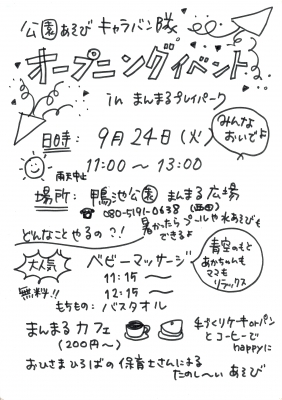 公園あそびキャラバン隊
オープニングイベント
in まんまるプレイパーク
みんな
おいでよ
日時: 9月24日(火)
11:00〜13:00
雨天中止
場所: 鴨池公園 まんまる広場
☎ 080-5191-0638 (西田)
どんなことやるの?!
暑かったらプールや水あそびも
できるよ
大人気
ベビーマッサージ
11:15 〜
12:15 〜
無料!!
青空のもと
あかちゃんも
ママも
リラックス
もちもの: バスタオル
まんまるカフェ
(200円〜)
手づくりケーキorパン
とコーヒーで
happyに
おひさまひろばの保育士さんによる
たのし〜い あそび